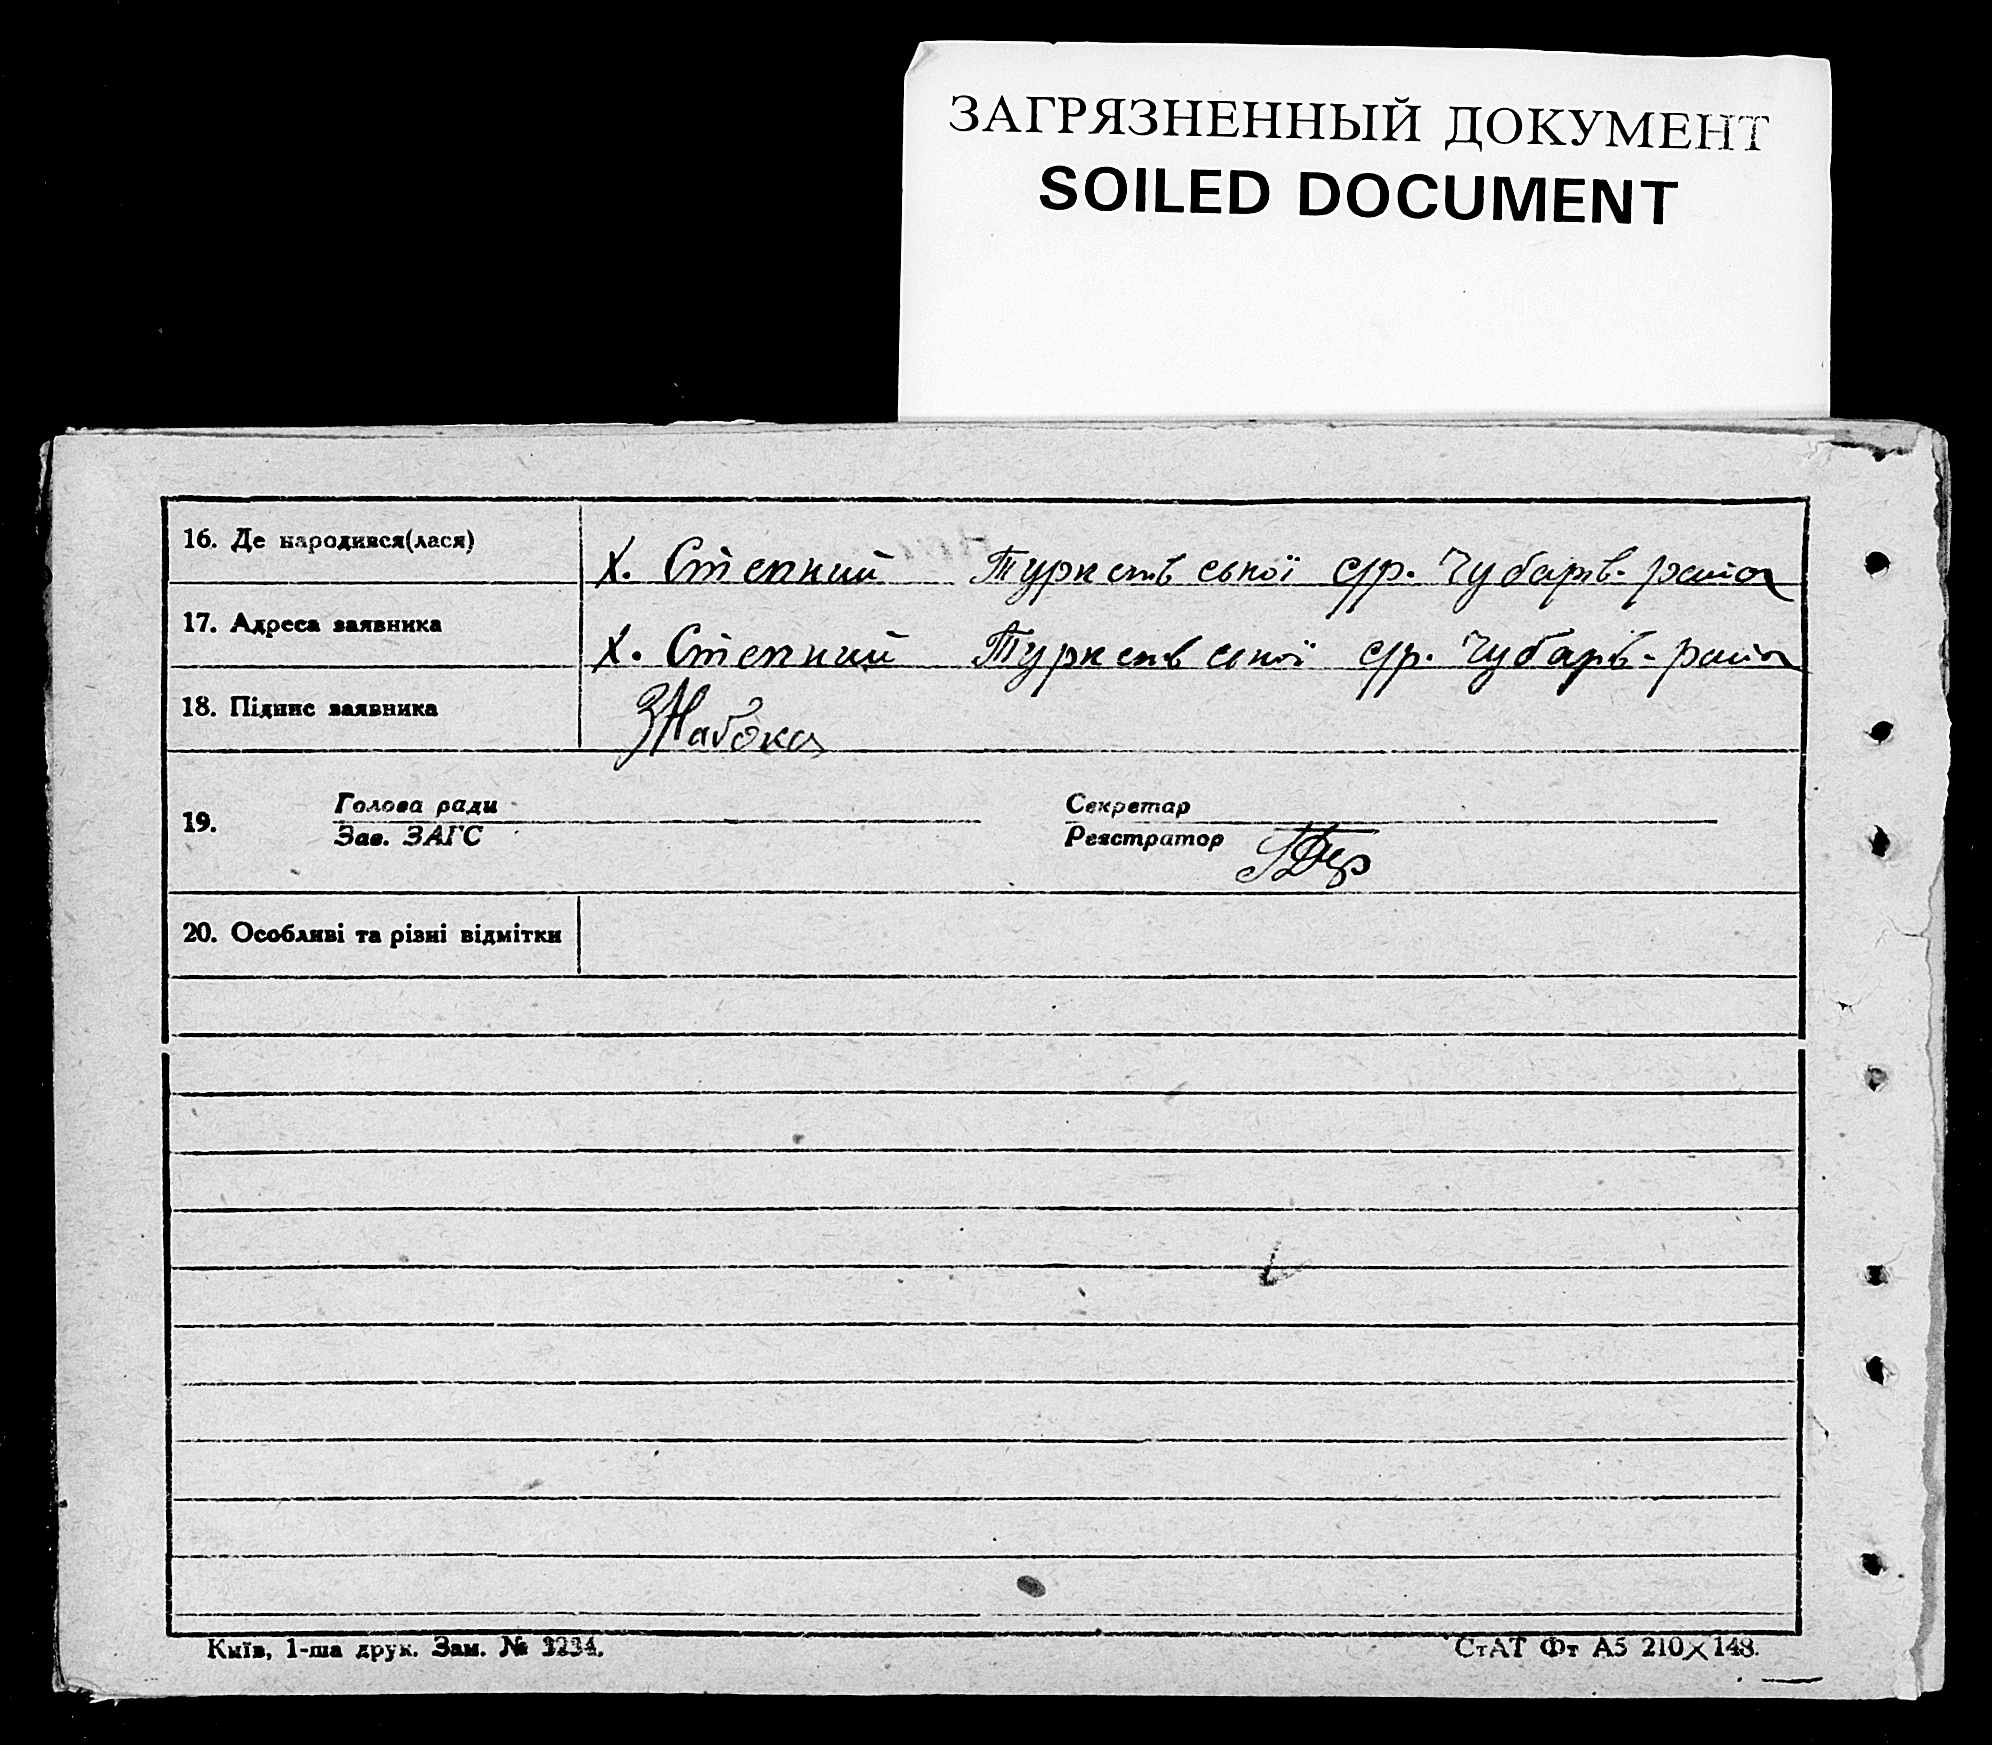 ЗАГРЯЗНЕННЫЙ ДОКУМЕНТ
SOILED DOCUMENT
16. Де народився(лася)
х. Степний Туркенівської с/р. Чубарів. район
17. Адреса заявника
х. Степний Туркенівської с/р. Чубарів. район
18. Підпис заявника
ЗНабока
19.
Голова ради
Зав. ЗАГС
Секретар
Реєстратор
20. Особливі та різні відмітки
Київ, 1-ша друк. Зам. № 3234.
СтАТ Фт А5 210×148.